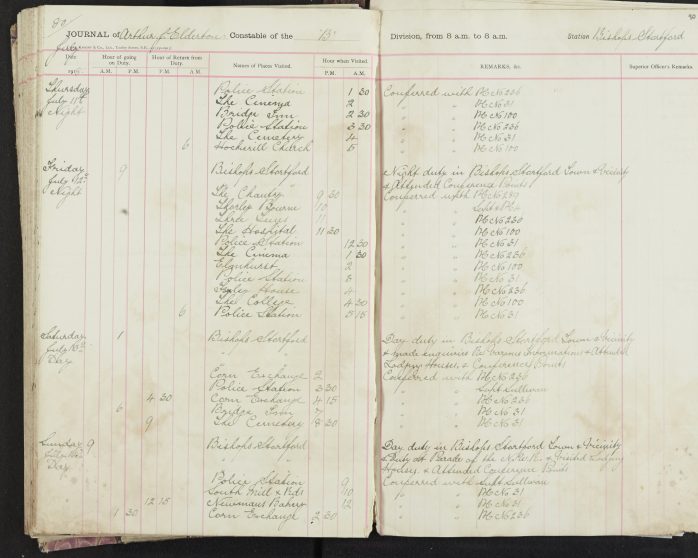 89
90
JOURNAL of Arthur J. Elderton Constable of the "B" Division, from 8 a.m. to 8 a.m. Station Bishops Stortford
July
Date Hour of going on Duty. Hour of Return from Duty. Names of Places Visited. Hour when Visited. REMARKS, &c. Superior Officer's Remarks.
191 A.M. P.M. P.M. A.M. P.M. A.M.
Thursday Police Station 1 30 Conferred with PC No 236
July 11th The Cinema 2 " " PC No 31
Night Bridge Inn 2 30 " " PC No 100
Police Station 3 30 " " PC No 236
The Cemetery 4 " " PC No 31
6 Hockerill Church 5 " " PC No 100
Friday 9 Bishops Stortford Night duty in Bishops Stortford Town & Vicinity
July 12th " & Attended Conference Points
Night The Chantry 9 30 Conferred with PC No
Thorley Bourne " "
Three Tuns 11 " " PC No 230
The Hospital 11 30 " " PC No 100
Police Station 12 30 " " PC No 31
The Cinema 1 30 " " PC No 236
Elmhurst 2 " " PC No 100
Police Station 3 " " PC No 31
House 4 " " PC No 236
The College 4 30 " " PC No 100
6 Police Station 5 15 " " PC No 31
Saturday 1 Bishops Stortford Day duty in Bishops Stortford Town & Vicinity
July 13th " & made enquiries Re Various & Attended
Day Lodging Houses, & Conference Points
Corn Exchange 2 Conferred with PC No 236
Police Station 3 30 " " Supt Sullivan
4 30 Corn Exchange 4 15 " " PC No 236
6 Bridge Inn 7 " " PC No 31
9 The Cemetery 8 30 " " PC No 31
Sunday 9 Bishops Stortford Day duty in Bishops Stortford Town & Vicinity
July 14th " & Duty at Parade of the & Visited Lodging
Day Houses, & Attended Conference Points
Police Station 9 Conferred with Supt Sullivan
South Mill 10 " " PC No 31
12 15 Newmans Bakery 12 " " PC No 31
1 30 Corn Exchange 2 30 " " PC No 236